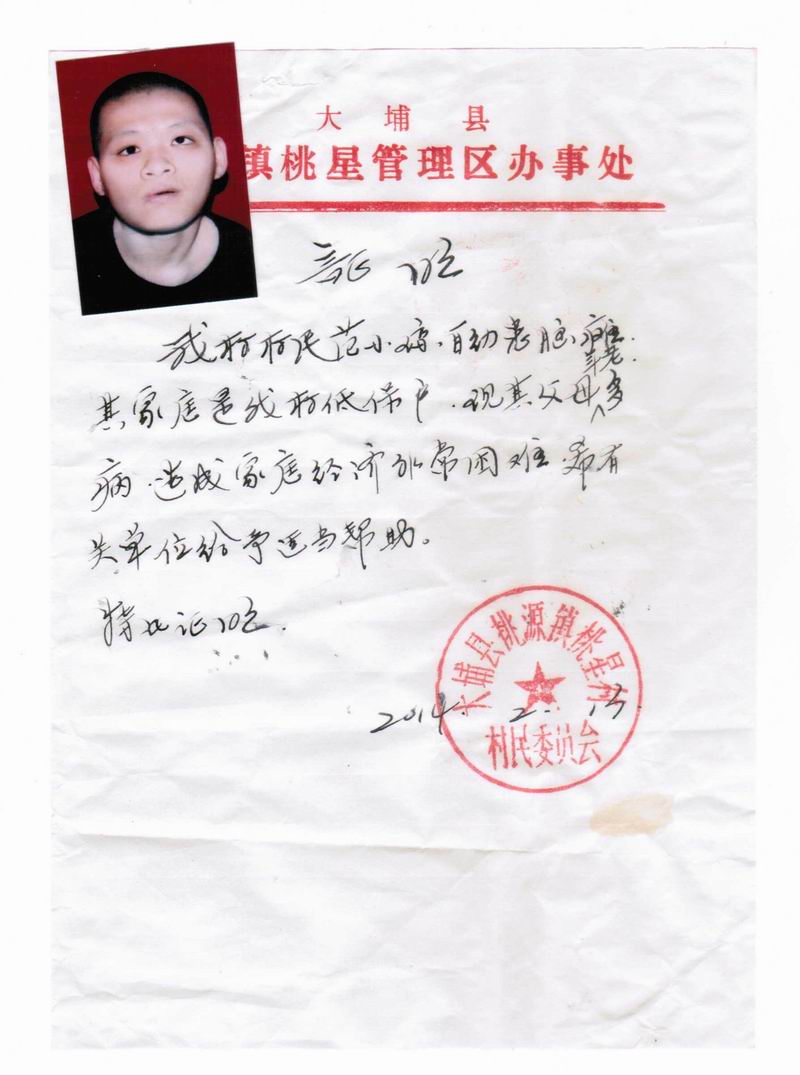 大埔县
镇桃星管理区办事处
証明
我村村民范小 自幼患脑瘫.
其家庭是我村低保户.现其父母年老多
病.造成家庭经济非常困难.希有
关单位给予适当帮助。
特此证明.
大埔县桃源镇桃星村
2014. 2. 13.
村民委员会